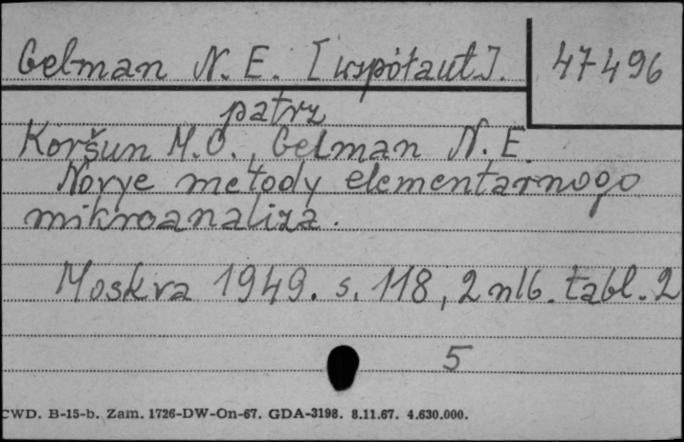 Gelman N. E. [współaut.].
47496
patrz
Koršun M.O., Gelman N. E.
Novye metody elementarnogo
mikroanaliza.
Moskva 1949. s. 118, 2 nlb. tabl. 2
5
CWD. B-15-b. Zam. 1726-DW-On-67. GDA-3198. 8.11.67. 4.630.000.